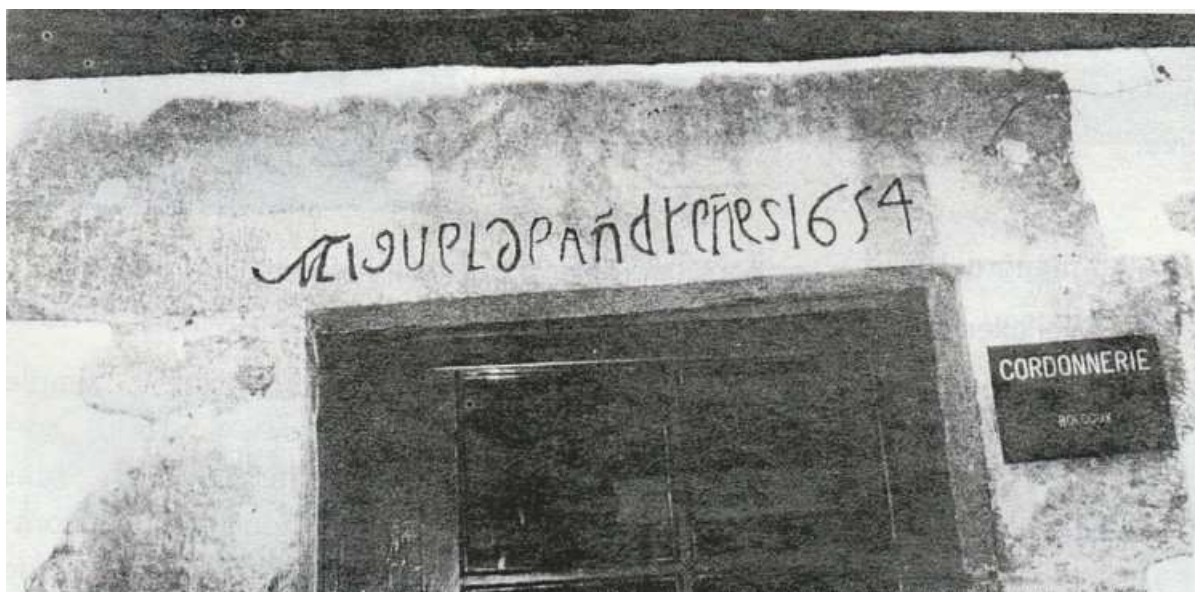 MIGUELdeAñdreñes1654
CORDONNERIE